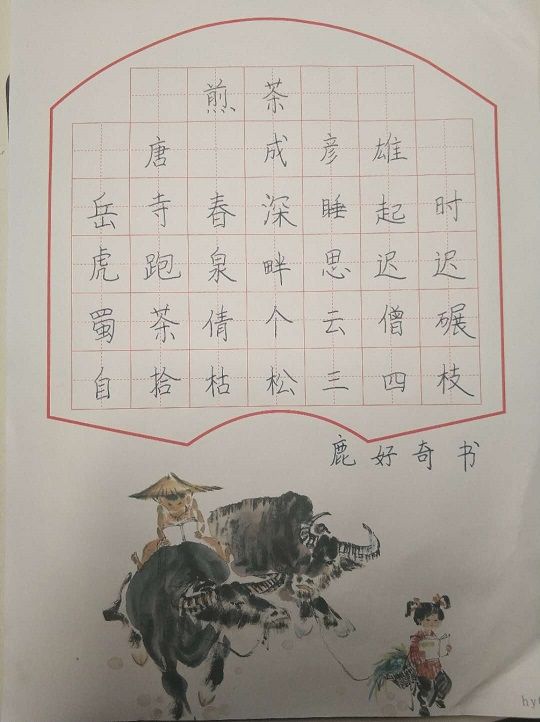 煎茶
唐 成彦雄
岳寺春深睡起时
虎跑泉畔思迟迟
蜀茶倩个云僧碾
自拾枯松三四枝
鹿好奇书